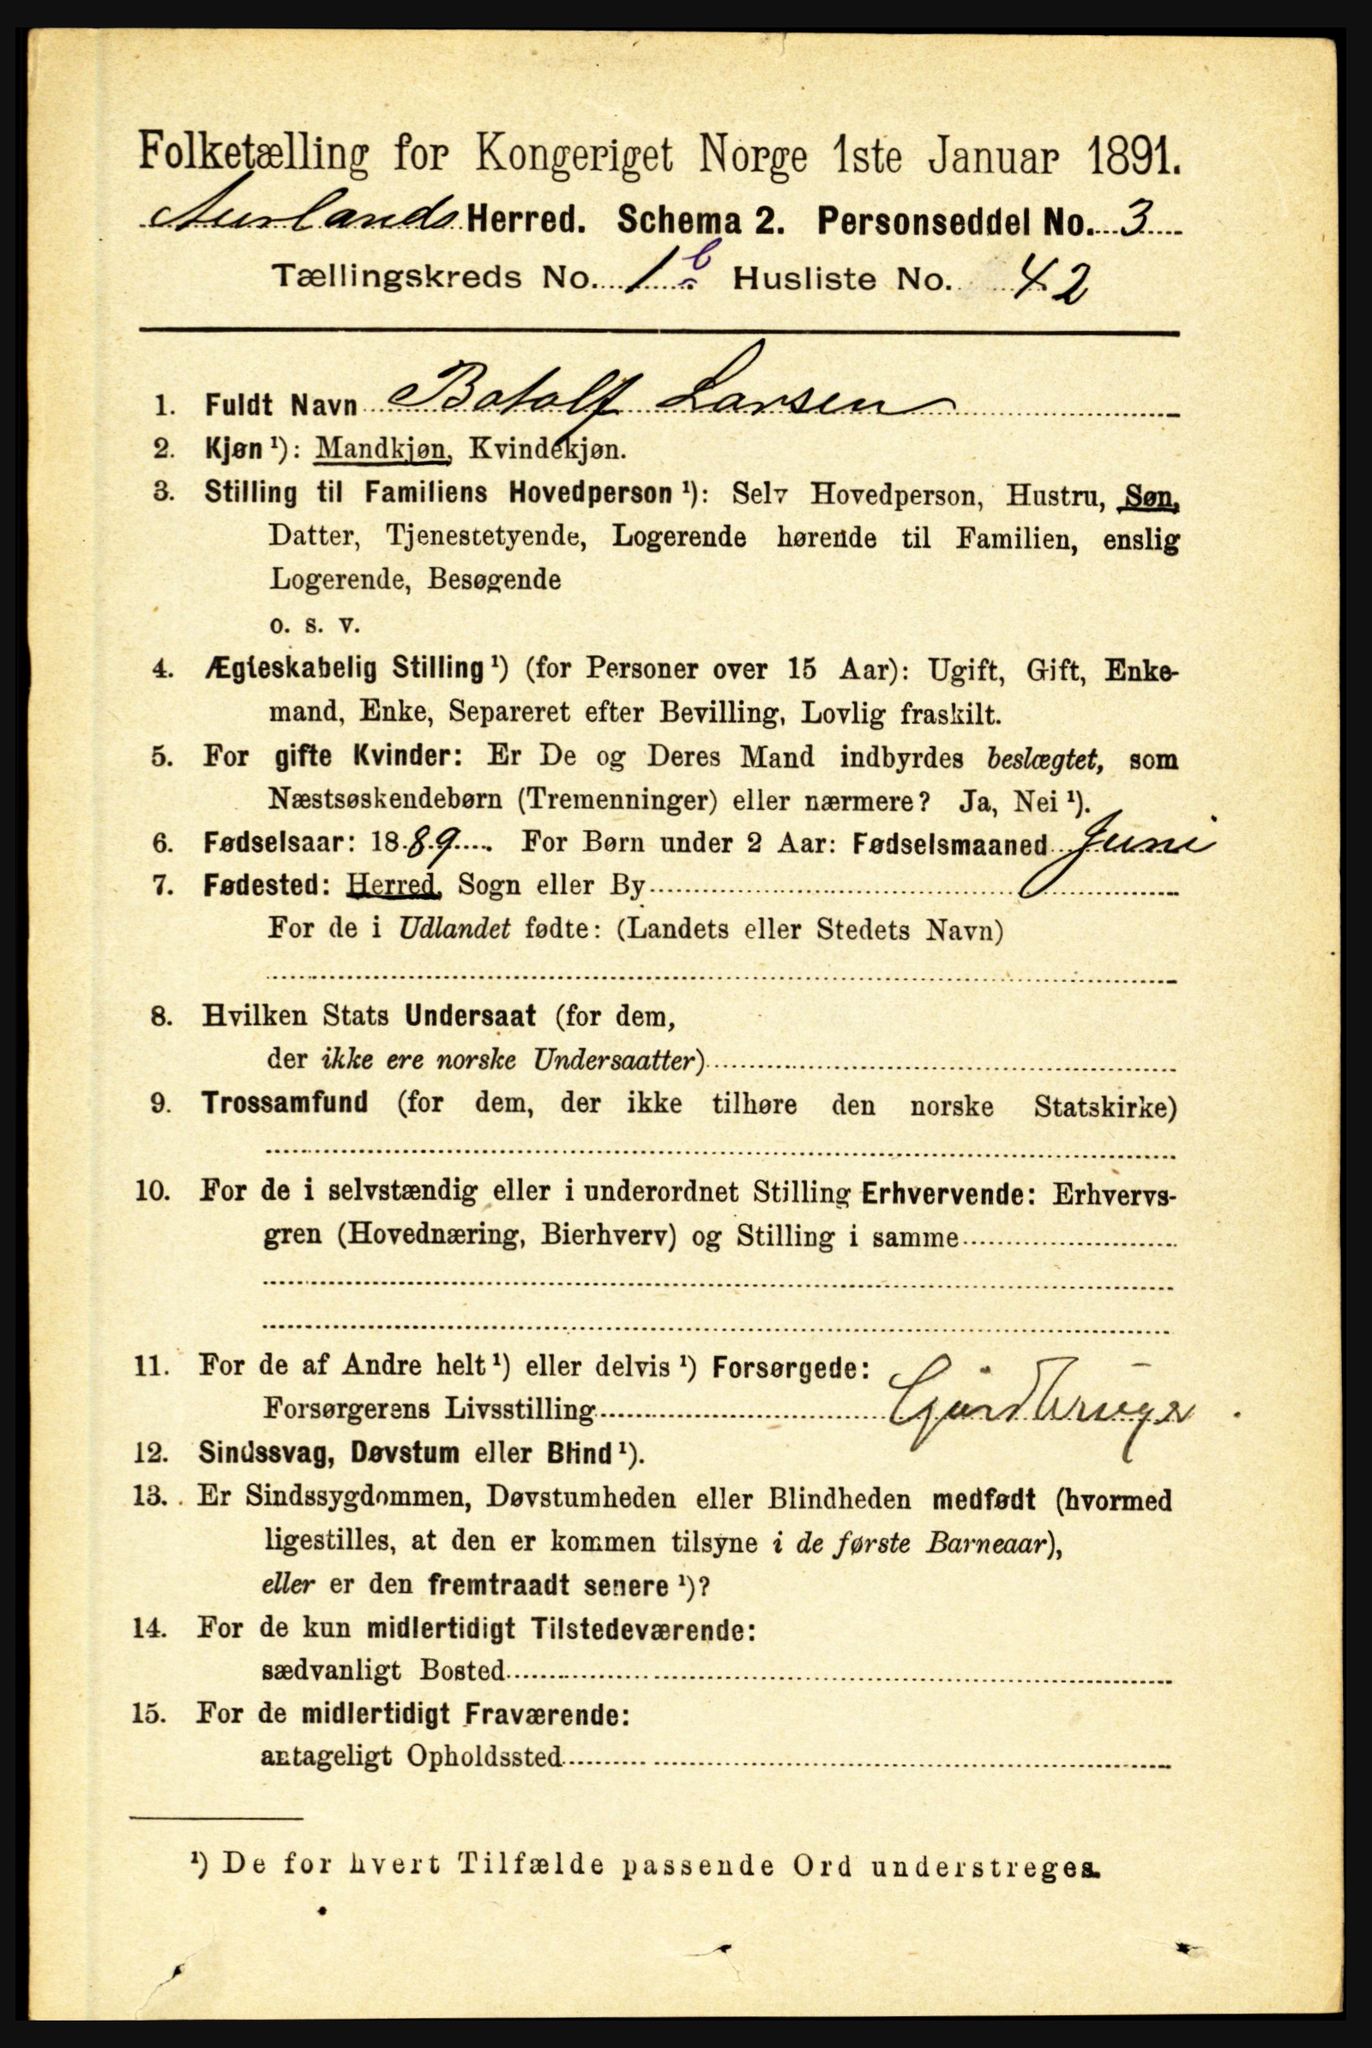 Folketælling for Kongeriget Norge 1ste Januar 1891.
Aurlands Herred. Schema 2. Personseddel No. 3
Tællingskreds No. 1 b Husliste No. 42
1. Fuldt Navn Botolf Larsen
2. Kjøn ¹): Mandkjøn, Kvindekjøn.
3. Stilling til Familiens Hovedperson ¹): Selv Hovedperson, Hustru, Søn,
Datter, Tjenestetyende, Logerende hørende til Familien, enslig
Logerende, Besøgende
o. s. v.
4. Ægteskabelig Stilling ¹) (for Personer over 15 Aar): Ugift, Gift, Enke-
mand, Enke, Separeret efter Bevilling, Lovlig fraskilt.
5. For gifte Kvinder: Er De og Deres Mand indbyrdes beslægtet, som
Næstsøskendebørn (Tremenninger) eller nærmere? Ja, Nei ¹).
6. Fødselsaar: 1889. For Børn under 2 Aar: Fødselsmaaned Juni
7. Fødested: Herred, Sogn eller By
For de i Udlandet fødte: (Landets eller Stedets Navn)
8. Hvilken Stats Undersaat (for dem,
der ikke ere norske Undersaatter)
9. Trossamfund (for dem, der ikke tilhøre den norske Statskirke)
10. For de i selvstændig eller i underordnet Stilling Erhvervende: Erhvervs-
gren (Hovednæring, Bierhverv) og Stilling i samme
11. For de af Andre helt ¹) eller delvis ¹) Forsørgede:
Forsørgerens Livsstilling Gaardbruger
12. Sindssvag, Døvstum eller Blind ¹).
13. Er Sindssygdommen, Døvstumheden eller Blindheden medfødt (hvormed
ligestilles, at den er kommen tilsyne i de første Barneaar),
eller er den fremtraadt senere ¹)?
14. For de kun midlertidigt Tilstedeværende:
sædvanligt Bosted
15. For de midlertidigt Fraværende:
antageligt Opholdssted
¹) De for hvert Tilfælde passende Ord understreges.